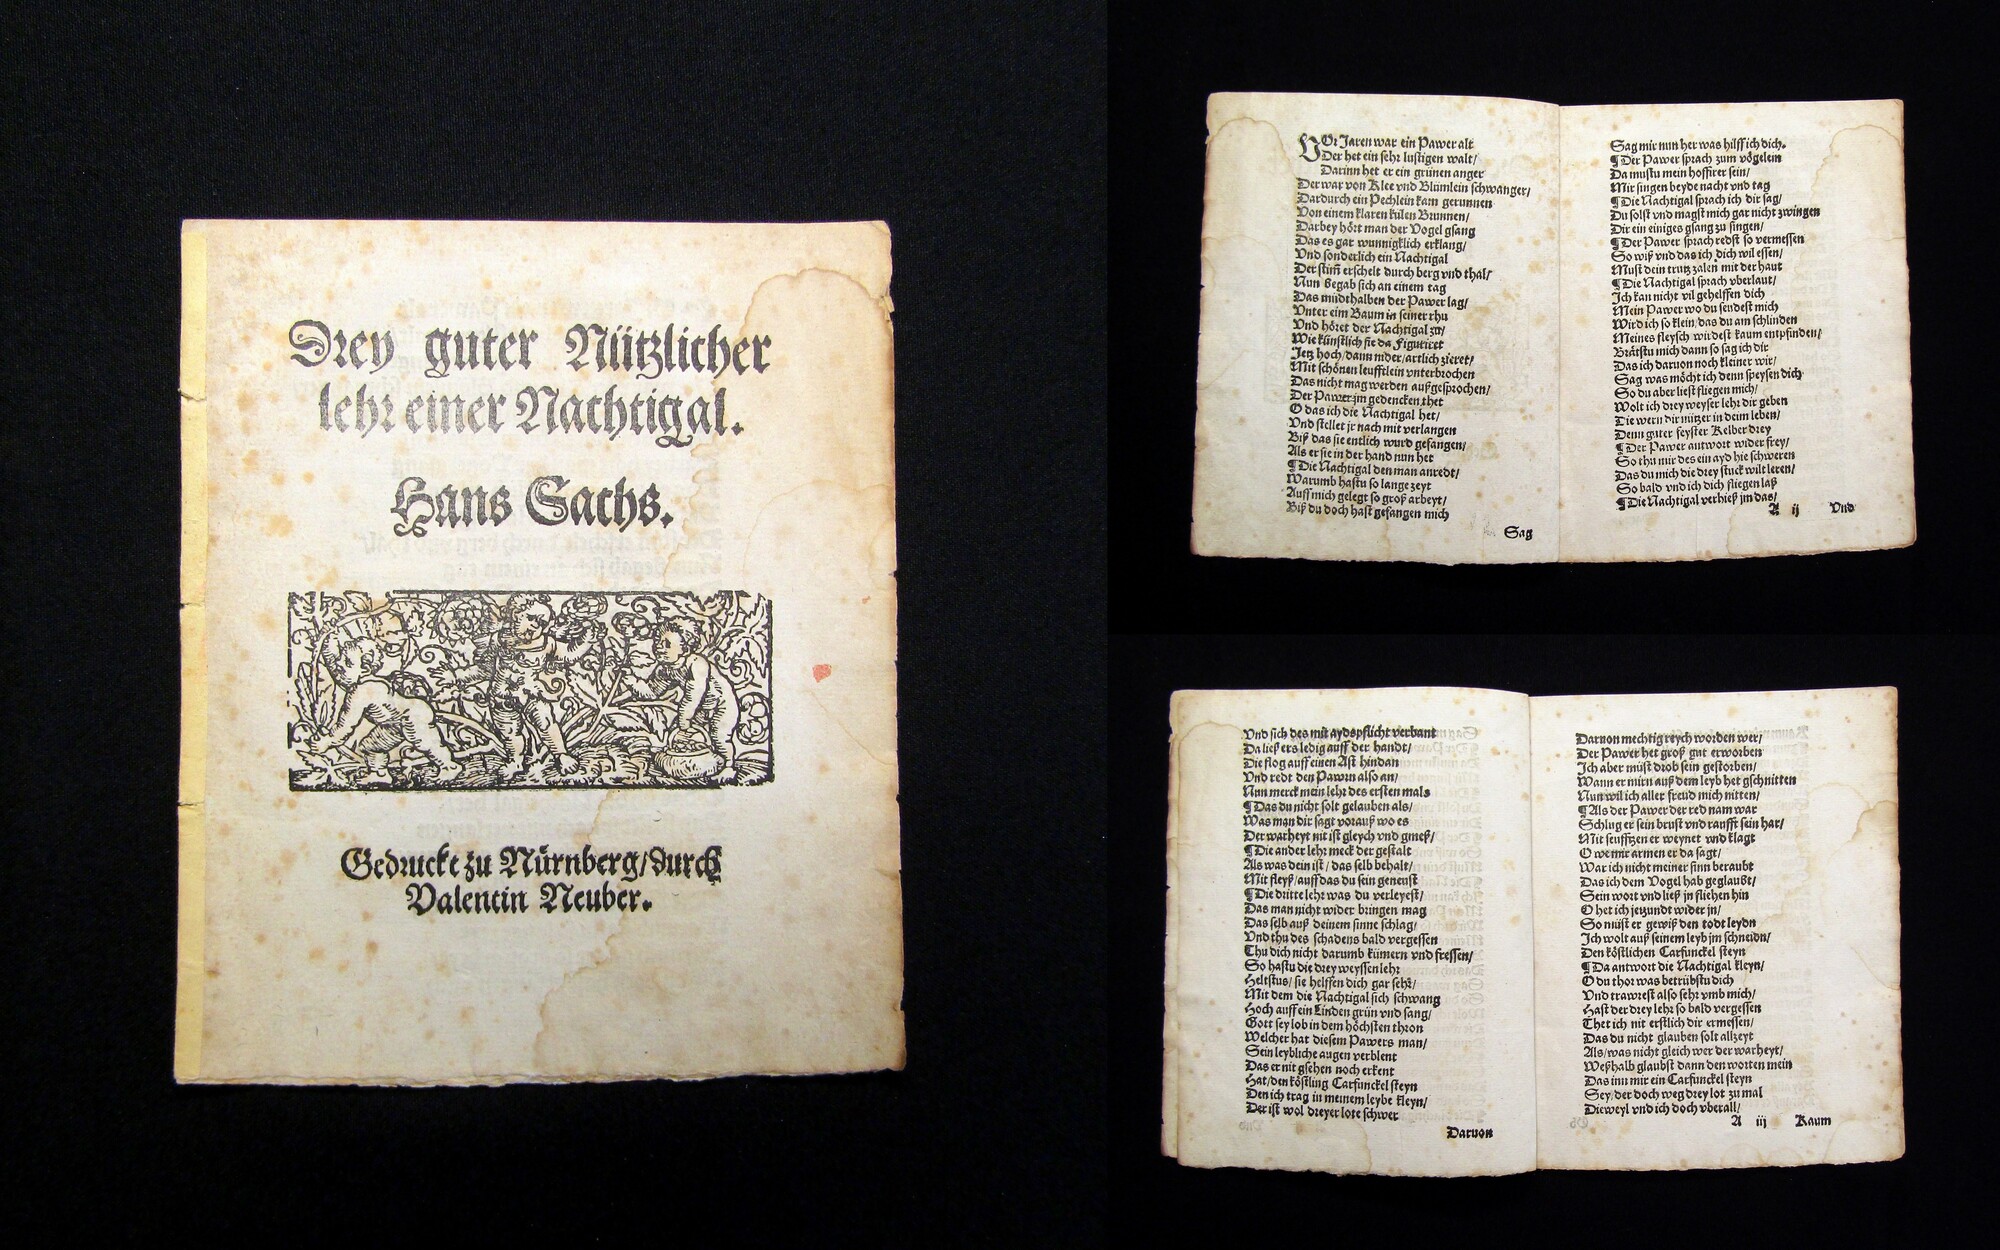 Drey guter Nützlicher
lehr einer Nachtigal.
Hans Sachs.
Gedruckt zu Nürnberg/durch
Valentin Neuber.
VOr Jaren war ein Pawer alt
Der het ein sehr lustigen walt/
Darinn het er ein grünen anger
Der war von Klee vnd Blümlein schwanger/
Dardurch ein Pechlein kam gerunnen
Von einem klaren külen Brunnen/
Darbey hört man der Vogel gsang
Das es gar wunnigklich erklang/
Vnd sonderlich ein Nachtigal
Der stim̄ erschelt durch berg vnd thal/
Nun begab sich an einem tag
Das müdthalben der Pawer lag/
Vnter ein Baum in seiner rhu
Vnd höret der Nachtigal zu/
Wie künstlich sie da Figuriret
Jetz hoch/dann nider/artlich zieret/
Mit schönen leufftlein vnterbrochen
Das nicht mag werden außgesprochen/
Der Pawer jm gedencken thet
O das ich die Nachtigal het/
Vnd stellet jr nach mit verlangen
Biß das sie entlich wurd gefangen/
Als er sie in der hand nun het
¶Die Nachtigal den man anredt/
Warumb hastu so lange zeyt
Auff mich gelegt so groß arbeyt/
Biß du doch hast gefangen mich
Sag
Sag mir nun her was hilff ich dich.
¶Der Pawer sprach zum vögelein
Da mustu mein hoffirer sein/
Mir singen beyde nacht vnd tag
¶Die Nachtigal sprach ich dir sag/
Du solst vnd magst mich gar nicht zwingen
Dir ein einiges gsang zu singen/
¶Der Pawer sprach redst so vermessen
So wiß vnd das ich dich wil essen/
Must dein trutz zalen mit der haut
¶Die Nachtigal sprach vberlaut/
Ich kan nicht vil gehelffen dich
Mein Pawer wo du sendest mich
Wird ich so klein/das du am schlinden
Meines fleysch wirdest kaum entpfinden/
Brätstu mich dann so sag ich dir
Das ich daruon noch kleiner wir/
Sag was möcht ich denn speysen dich
So du aber liest fliegen mich/
Wolt ich drey weyser lehr dir geben
Die wern dir nützer in deim leben/
Denn guter feyster Kelber drey
¶Der Pawer antwort wider frey/
So thu mir des ein ayd hie schweren
Das du mich die drey stuck wilt leren/
So bald vnd ich dich fliegen laß
¶Die Nachtigal verhieß jm das/
A ij Vnd
Vnd sich des mit aydspflicht verbant
Da ließ ers ledig auff der handt/
Die flog auff einen Ast hindan
Vnd redt den Pawrn also an/
Nun merck mein lehr des ersten mals
¶Das du nicht solt gelauben als/
Was man dir sagt vorauß wo es
Der warheyt nit ist gleych vnd gmeß/
¶Die ander lehr meck der gestalt
Als was dein ist/ das selb behalt/
Mit fleyß/auff das du sein geneust
¶Die dritte lehr was du verleyest/
Das man nicht wider bringen mag
Das selb auß deinem sinne schlag/
Vnd thu des schadens bald vergessen
Thu dich nicht darumb kümern vnd fressen/
So hastu die drey weyssen lehr
Heltstus/ sie helffen dich gar sehr/
Mit dem die Nachtigal sich schwang
Hoch auff ein Linden grün vnd sang/
Gott sey lob in dem höchsten thron
Welcher hat diesem Pawers man/
Sein leybliche augen verblent
Das er nit gsehen noch erkent
Hat/den köstling Carfunckel steyn
Den ich trag in meinem leybe kleyn/
Der ist wol dreyer lote schwer
Daruon
Daruon mechtig reych worden wer/
Der Pawer het groß gut erworben
Ich aber müst drob sein gestorben/
Wann er mirn auß dem leyb het gschnitten
Nun wil ich aller freud mich nitten/
¶Als der Pawer der red nam war
Schlug er sein brust vnd raufft sein har/
Mit seufftzen er weynet vnd klagt
O we mir armen er da sagt/
War ich nicht meiner sinn beraubt
Das ich dem Vogel hab geglaubt/
Sein wort vnd ließ jn fliehen hin
O het ich jetzundt wider jn/
So müst er gewiß den todt leydn
Ich wolt auß seinem leyb jm schneidn/
Den köstlichen Carfunckel steyn
¶Da antwort die Nachtigal kleyn/
O du thor was betrübstu dich
Vnd trawrest also sehr vmb mich/
Hast der drey lehr so bald vergessen
Thet ich nit erstlich dir ermessen/
Das du nicht glauben solt allzeyt
Als/was nicht gleich wer der warheyt/
Weßhalb glaubst dann den worten mein
Das inn mir ein Carfunckel steyn
Sey/der doch weg drey lot zu mal
Dieweyl vnd ich doch vberall/
A iij Kaum